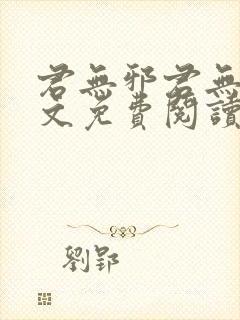 君無邪君無
文免費閱讀
劉郢